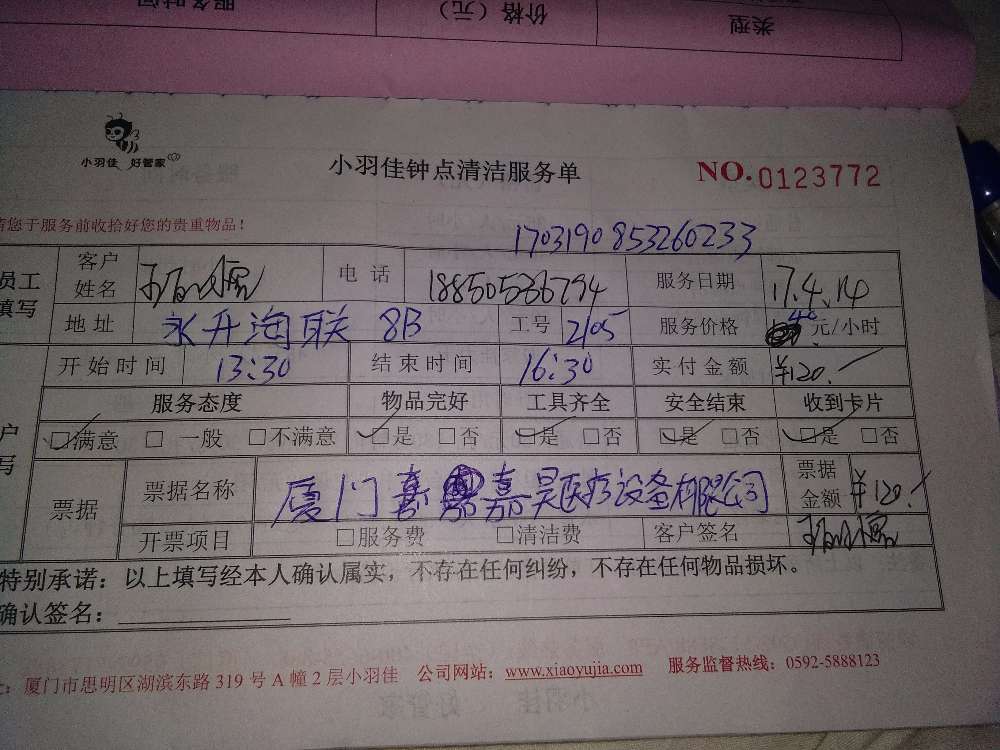 服务时间 价格（元） 类型
小羽佳 好管家
小羽佳钟点清洁服务单 NO.0123772
您于服务前收拾好您的贵重物品！
170319085326 0233
员工填写 客户姓名 电话 18850536794 服务日期 17.4.14
地址 永升海联 8B 工号 2105 服务价格 40元/小时
开始时间 13:30 结束时间 16:30 实付金额 ¥120.
服务态度 物品完好 工具齐全 安全结束 收到卡片
户写 ☑满意 □一般 □不满意 ☑是 □否 ☑是 □否 ☑是 □否 ☑是 □否
票据 票据名称 厦门嘉昊医疗设备有限公司 票据金额 ¥120.
开票项目 □服务费 □清洁费 客户签名
特别承诺：以上填写经本人确认属实，不存在任何纠纷，不存在任何物品损坏。
确认签名：
厦门市思明区湖滨东路 319 号 A 幢 2 层小羽佳 公司网站：www.xiaoyujia.com 服务监督热线：0592-5888123